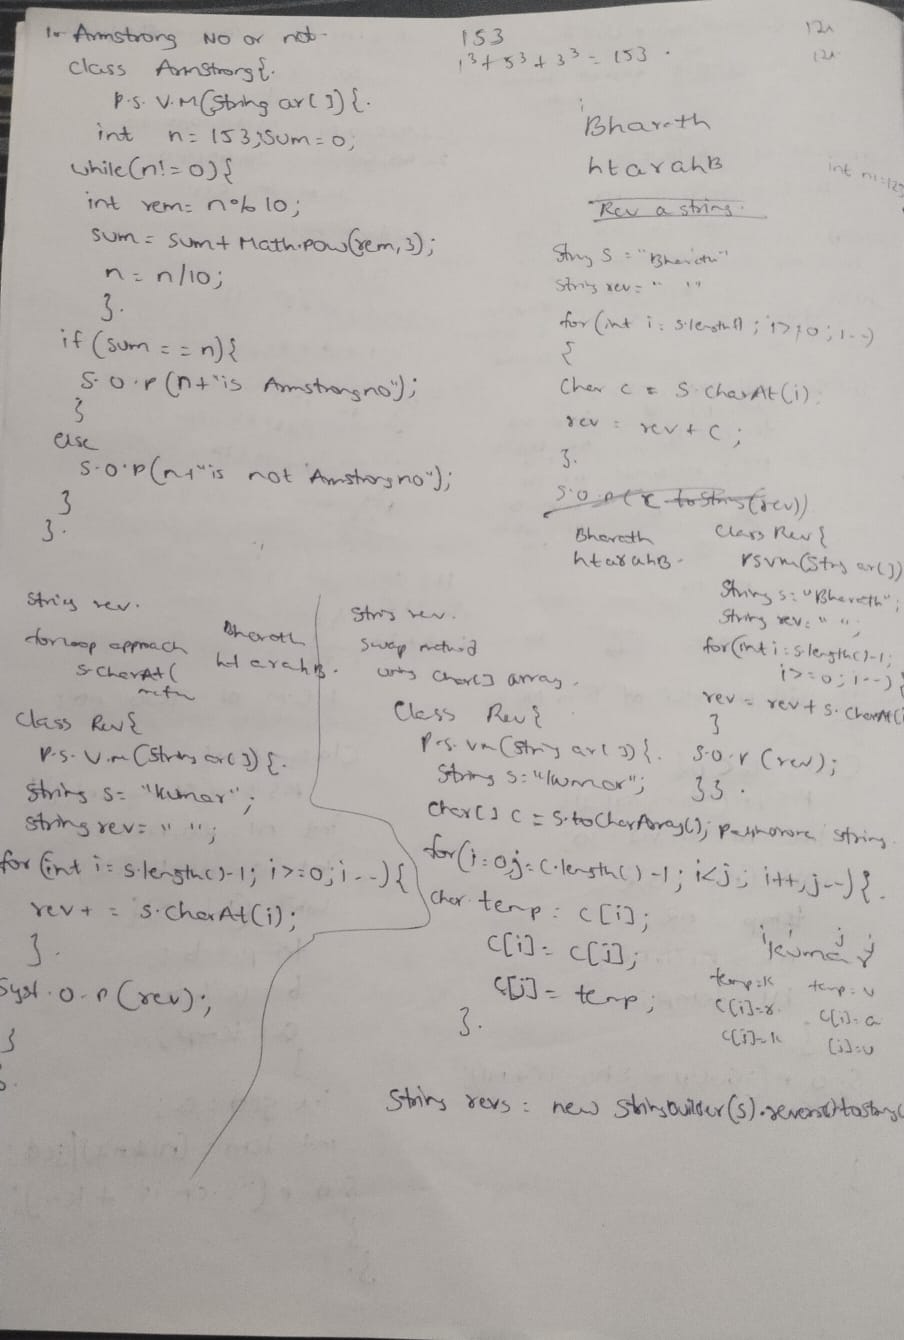 1. Armstrong No or not.
class Armstrong{.
P.S. V.M(String ar[]) {.
int n = 153; sum = 0;
while(n!=0){
int rem = n%10;
sum = sum + Math.pow(rem,3);
n = n/10;
}.
if (sum == n){
S.O.P(n+"is Armstrong no");
}
else
S.O.P(n+"is not Armstrong no");
}
}.
153
1³+5³+3³ = 153.
12
12
i
Bharath
htarahB
int n1=123
Rev a string.
String s = "Bharath"
String rev = " "
for (int i = s.length(); i>=0; i--)
{
Char c = S.charAt(i);
rev = rev + c;
}.
toString(rev))
Bharath
htarahB.
Class Rev{
PSVM(Strg ar[])
String s = "Bharath";
String rev = " ";
for(int i = s.length()-1;
i>=0; i--){
rev = rev + s.CharAt(i
}
S.O.P (rev);
}}.
String rev.
for loop approach
s.CharAt(
Bharath
htarahB.
Class Rev{
P.S. V.m (String ar[]) {.
String s = "kumar";
String rev = " ";
for (int i = s.length()-1; i>=0; i--){
rev+ = s.charAt(i);
}.
Syst.O.P (rev);
}
}.
String rev.
Swap method
using char[] array.
Class Rev{
P.S. Vm (String ar[]) {.
String s = "kumar";
Char[] c = S.toCharArray(); string
for(i=0, j=c.length()-1; i<j; i++, j--){.
Char temp = c[i];
c[i] = c[j];
c[j] = temp;
}.
i j j
kumar
temp=k
c[i]=r
c[j]=k
temp=u
c[i]=a
[j]=u
String revs = new StringBuilder(s).reverse().toString(